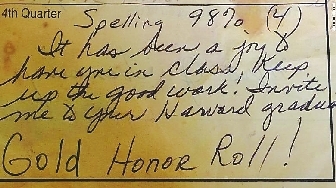 4th Quarter
Spelling 98% (4)
It has been a joy to
have you in class. Keep
up the good work! Invite
me to your Harvard gradua
Gold Honor Roll!